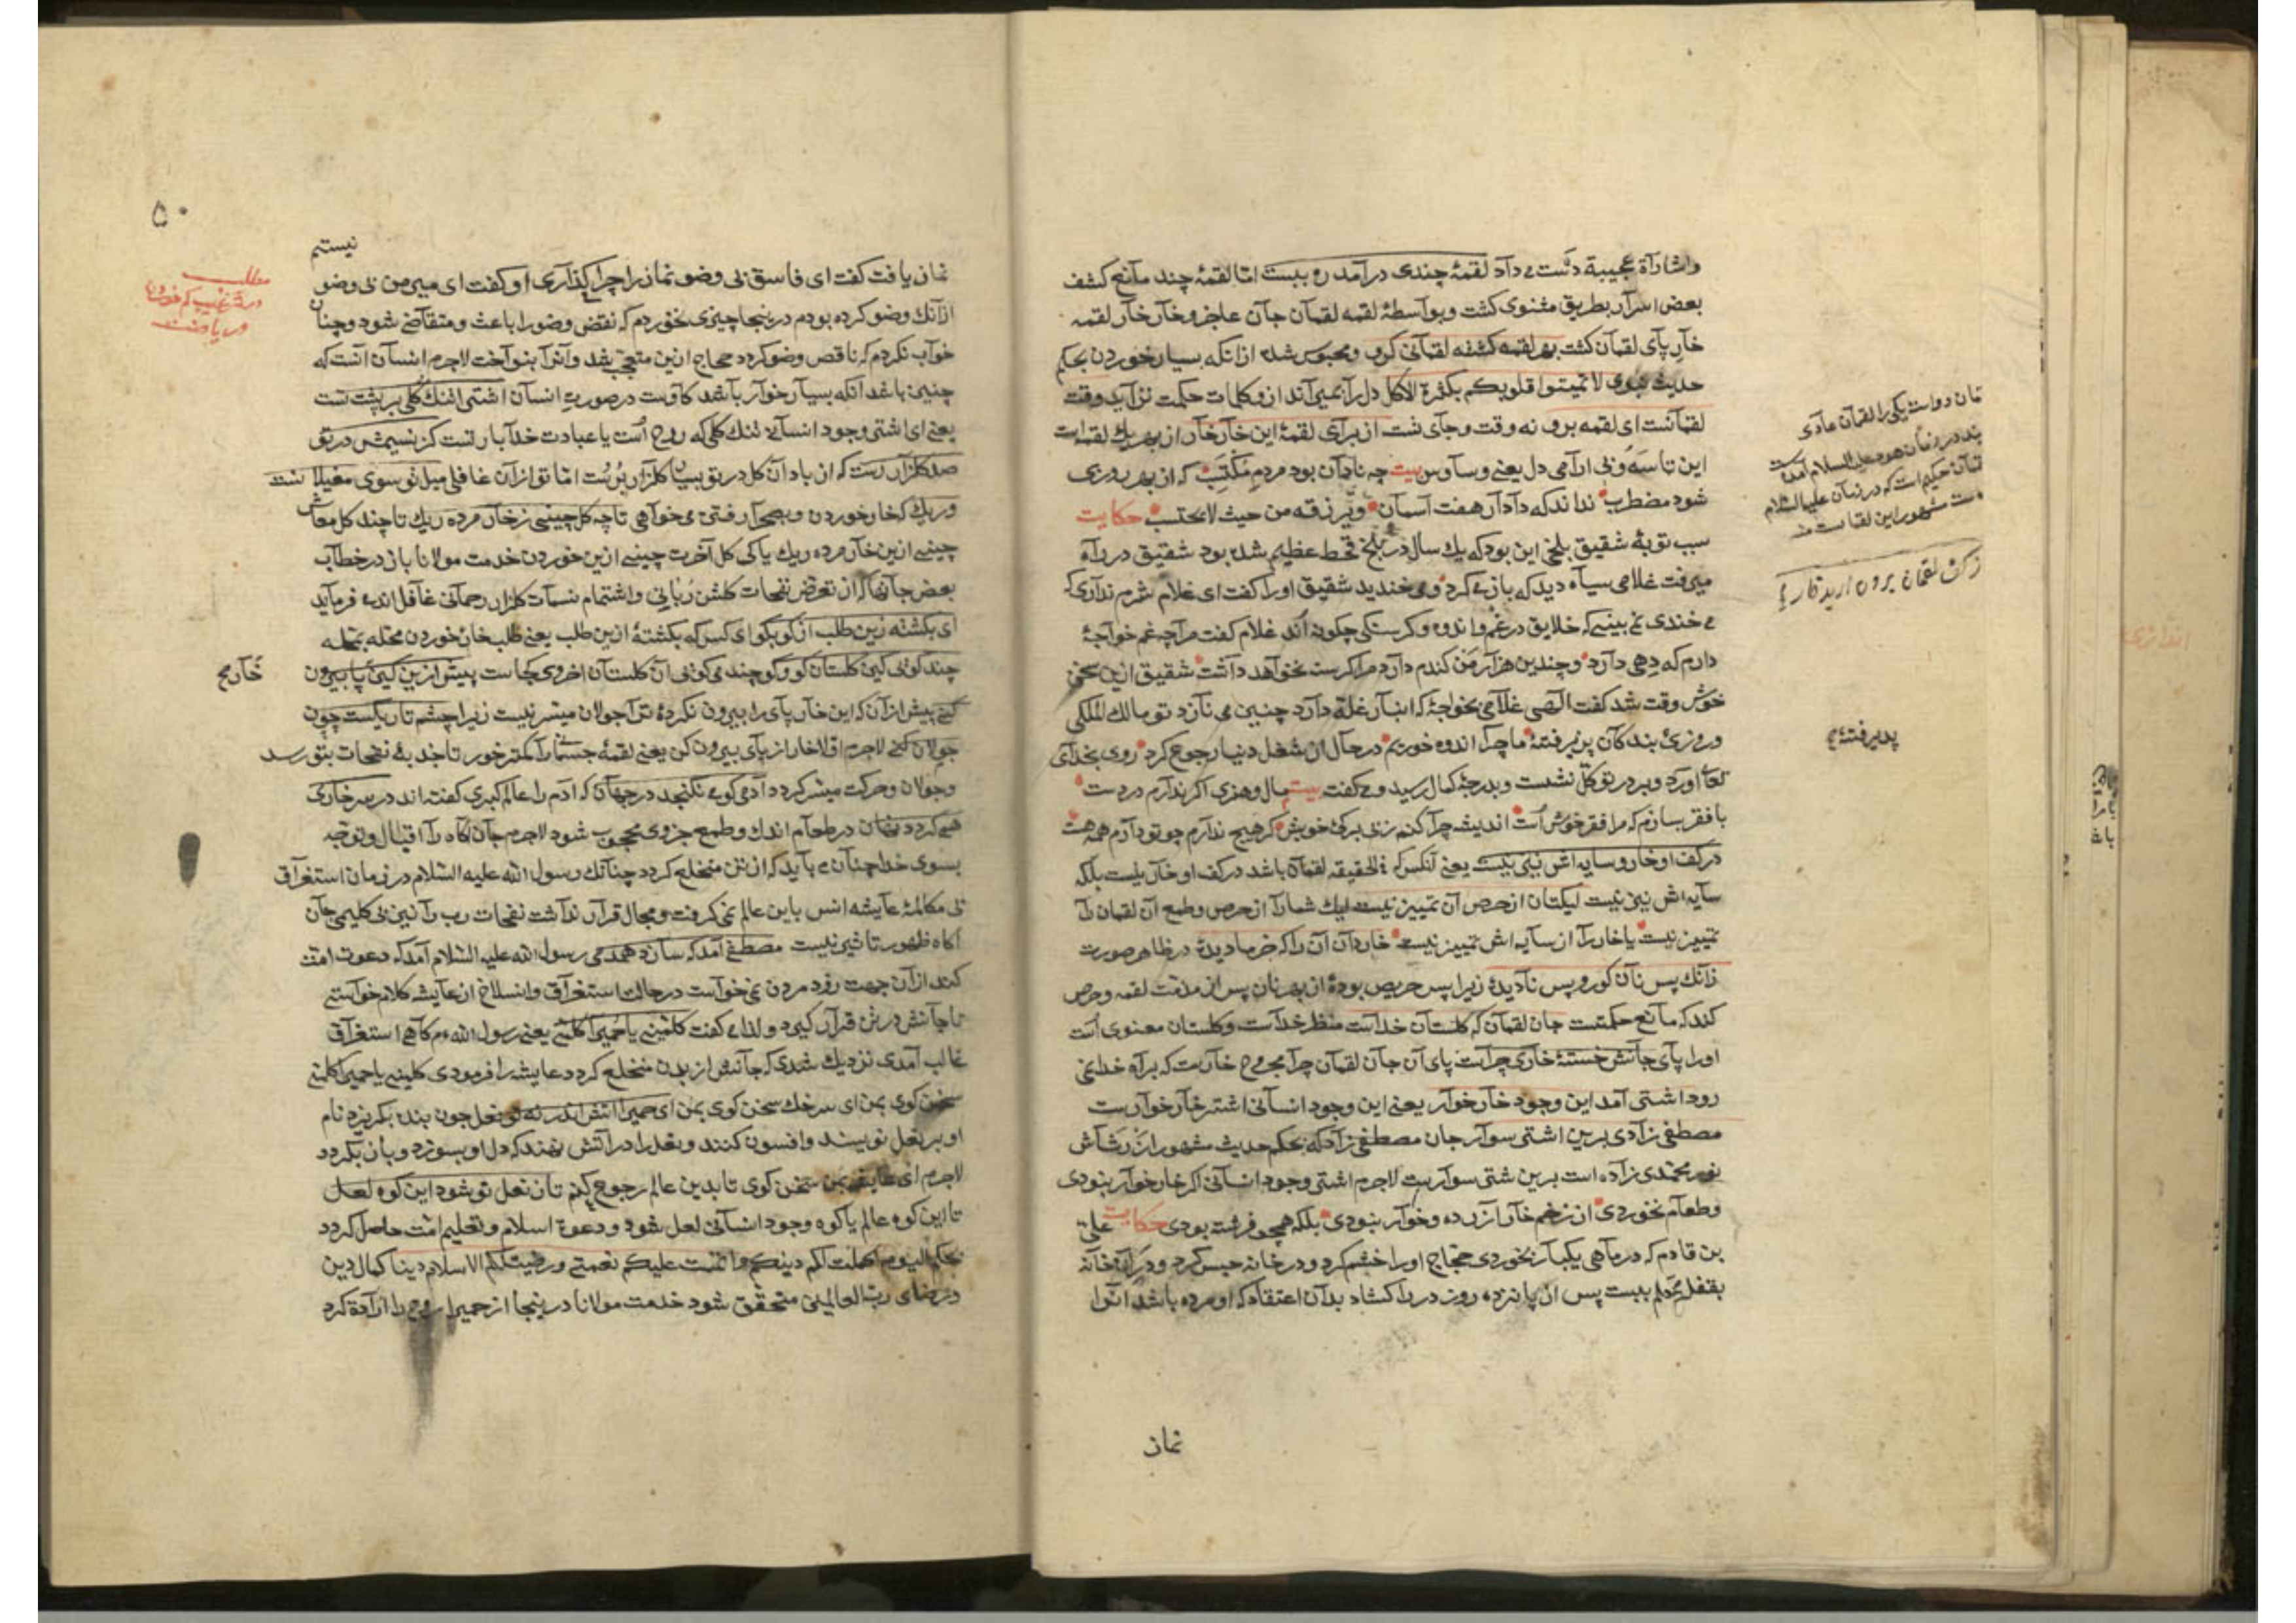 واشاراة عجیبة دست می‌داد لقمهٔ چندی درآمد ره ببست امّا لقمهٔ چند مانع کشف
بعض اسرار بطریق مثنوی کشت وبواسطهٔ لقمه لقمان جان عاجز وخار خار لقمه
خار پای لقمان کشت بهر لقمه کشته لقمانی کرو ومحبوس شده ازانکه بسیار خوردن بحکم
حدیث نبوی لا تمیتوا قلوبکم بکثرة الاکل دل را بمیراند ازو کلمات حکمت نزاید وقت
لقمانست ای لقمه برو نه وقت وجای تست از برای لقمهٔ این خار خار از بهر یک لقمه است
این تاسه وبی ارامی دل یعنی وساوس بیت چه نادان بود مردم مکتسب که از بهر روزی
شود مضطرب نداند که دادار هفت آسمان ویرزقه من حیث لا یحتسب حکایت
سبب توبهٔ شقیق بلخی این بود که یک سال در بلخ قحط عظیم شده بود شقیق در راه
میرفت غلامی سیاه دید که بازی کرد ومی خندید شقیق اورا کفت ای غلام شرم نداری که
می خندی نمی بینی که خلایق در غم واندوه وکرسنکی چکونه اند غلام کفت مرا چه غم خواجهٔ
دارم که دهی دارد وچندین هزار من کندم دارد مرا کرسنه نخواهد داشت شقیق ازین سخن
خوش وقت شد کفت الهی غلامی بخواجهٔ که انبار غله دارد چنین می نازد تو مالک الملکی
وروزی بندکان پذیرفتهٔ ما چرا اندوه خوریم در حال از شغل دنیا رجوع کرد روی بخدای
تعالی اورد وبر در توکل نشست وبدرجهٔ کمال رسید ومی کفت بیت مال وهنری اکر ندارم در دست
با فقر بسازم که مرا فقر خوش است اندیشه چرا کنم ز بی برکی خویش کر هیچ ندارم چو تو دارم همه هست
در کف او خار وسایه اش نیز نیست یعنی آنکس که فی الحقیقه لقمان باشد در کف او خار نیست بلکه
سایه اش نیز نیست لیکتان از حرص آن تمییز نیست لیک شمارا از حرص وطمع آن لقمان را
تمییز نیست یا خار را از سایه اش تمییز نیست خار دان آن را که خرما دیدهٔ در ظاهر صورت
زانک پس نان کور وپس نادیدهٔ زیرا پس حریص بودهٔ از بهر نان پس از مذمت لقمه وحرص
کند که مانع حکمتست جان لقمان که کلستان خداست منظر خداست وکلستان معنوی است
اورا پای جانش خستهٔ خاری چراست پای آن جان لقمان چرا مجروح خاریست که براه خدا نمی
رود اشتر آمد این وجود خار خوار یعنی این وجود انسانی اشتر خار خوارست
مصطفی زادی برین اشتر سوار جان مصطفی زاد که بحکم حدیث مشهور از رشاش
نور محمدی زاده است برین شتر سوارست لاجرم اشتر وجود انسانی اکر خار خوار نبودی
وطعام نخوردی از زخم خار آزرده وخوار نبودی بلکه همچو فرشته بودی حکایت علی
بن قادم که در ماهی یکبار نخوردی حجاج اورا خشم کرد ودر خانه حبس کرد ودر آن خانه
بقفل محکم ببست پس از پانزده روز در را کشاد بدان اعتقاد که او مرده باشد اورا
نماز
پذیرفتهٔ
۵۰
نیستم
نماز یافت کفت ای فاسق بی وضو نماز را چرا کذاری او کفت ای میر من بی وضو
ازانک وضو کرده بودم درینجا چیزی نخوردم که نقض وضو را باعث ومتقاضی شود وچنان
خواب نکردم که ناقص وضو کردد حجاج ازین متعجب شد واورا بنواخت لاجرم انسان آنست که
چنین باشد آنکه بسیار خوار باشد کاوست در صورت انسان اشترا تنک کلی بر پشت تست
یعنی ای اشتر وجود انسانی تنک کلی که روح است یا عبادت خدا بار تست کز نسیمش در تو
صد کلزار رست که از باد آن کل در تو بسیار کلزار برست امّا تو ازان غافلی میل تو سوی مغیلانست
وریک که خار خوردن وبصحرا رفتن می خواهی تا چه کل چینی ز خار مرده ریک تا چند کل معاش
چینی ازین خار مرده ریک یا کی کل آخرت چینی ازین خوردن خدمت مولانا باز در خطاب
بعض جانها که از تعرض نفحات کلشن ربانی واشتمام نسمات کلزار رحمانی غافل اند می فرماید
ای بکشته زین طلب از کو بکو ای کس که بکشتهٔ ازین طلب یعنی طلب خار خوردن محله بمحله
چند کوئی کین کلستان کو وکو چند می کوئی آن کلستان اخروی کجاست پیش ازین کین پا بیرون
خار
کنی پیش ازان که این خار پای را بیرون نکردهٔ ترا جولان میسر نیست زیرا چشم تاریکست چون
جولان کنی لاجرم اوّلا خار از پای بیرون کن یعنی لقمهٔ جسمانی را کمتر خور تا جذبهٔ نفحات بتو رسد
وجولان وحرکت میسر کردد آدمی کو می نکنجد در جهان که آدم را عالم کبری کفته اند در سر خاری
همی کردد نهان در طعام اندک وطمع جزوی محجوب شود لاجرم جان آکاه را اقبال وتوجه
بسوی خدا چنان می باید که از تن منخلع کردد چنانک رسول الله علیه السلام در زمان استغراق
بی مکالمهٔ عایشه انس باین عالم نمی کرفت ومجال قرار نداشت نفحات رب را نیز بی کلیمی جان
آکاه ظهور تاثیر نیست مصطفی آمد که سازد همدمی رسول الله علیه السلام آمد که دعوت امت
کند ازان جهت زود مردن نمی خواست در حالت استغراق وانسلاخ از عایشه کلام خواستی
تا جانش در تن قرار کیرد ولذا می کفت کلمینی یا حمیرا کلمی یعنی رسول الله م که کاهی استغراق
غالب آمدی نزدیک شدی که جانش از بدن منخلع کردد عایشه را فرمودی کلمینی یا حمیرا کلمی
سخن کوی بمن ای سرخک سخن کوی بمن ای حمیرا آتش اندر نه تو نعل چون بنده بکریزد نام
او بر نعل نویسند وافسون کنند ونعل را در آتش نهند که دل او بسوزد وباز بکردد
لاجرم ای عایشه بمن سخن کوی تا بدین عالم رجوع کنم تا ز نعل تو شود این کوه لعل
تا این کوه عالم یا کوه وجود انسانی لعل شود ودعوة اسلام وتعلیم امّت حاصل کردد
بحکم الیوم اکملت لکم دینکم واتممت علیکم نعمتی ورضیت لکم الاسلام دینا کمال دین
ورضای رب العالمین متحقق شود خدمت مولانا درینجا از حمیرا روح را ارادة کرد
مطلب